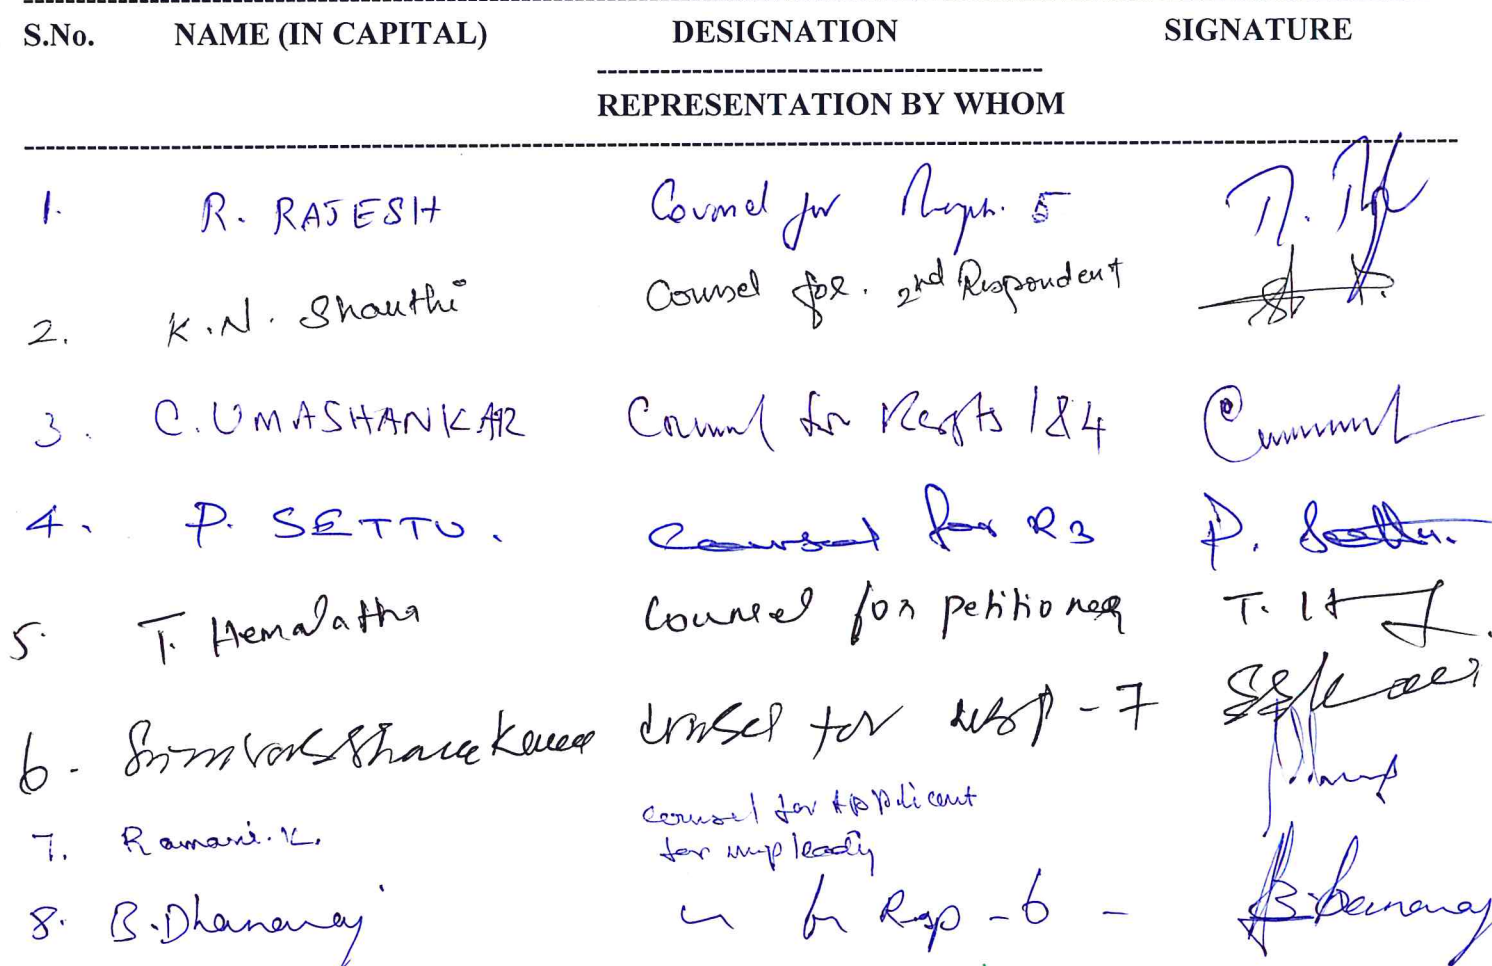 S.No. NAME (IN CAPITAL) DESIGNATION SIGNATURE
REPRESENTATION BY WHOM
1. R. RAJESH Counsel for 5
2. K.N. Shanthi Counsel for. 2nd Respondent
3. C. UMASHANKAR Counsel for Respts 1&4
4. P. SETTU. Counsel for R3 P. Settu.
5. T. Hemalatha Counsel for petitioner T. H
6. counsel for resp - 7
7. Ramani. K. counsel for Applicant
for impleading
8. B. Dhanaraj for Resp - 6 - B. Dhanaraj